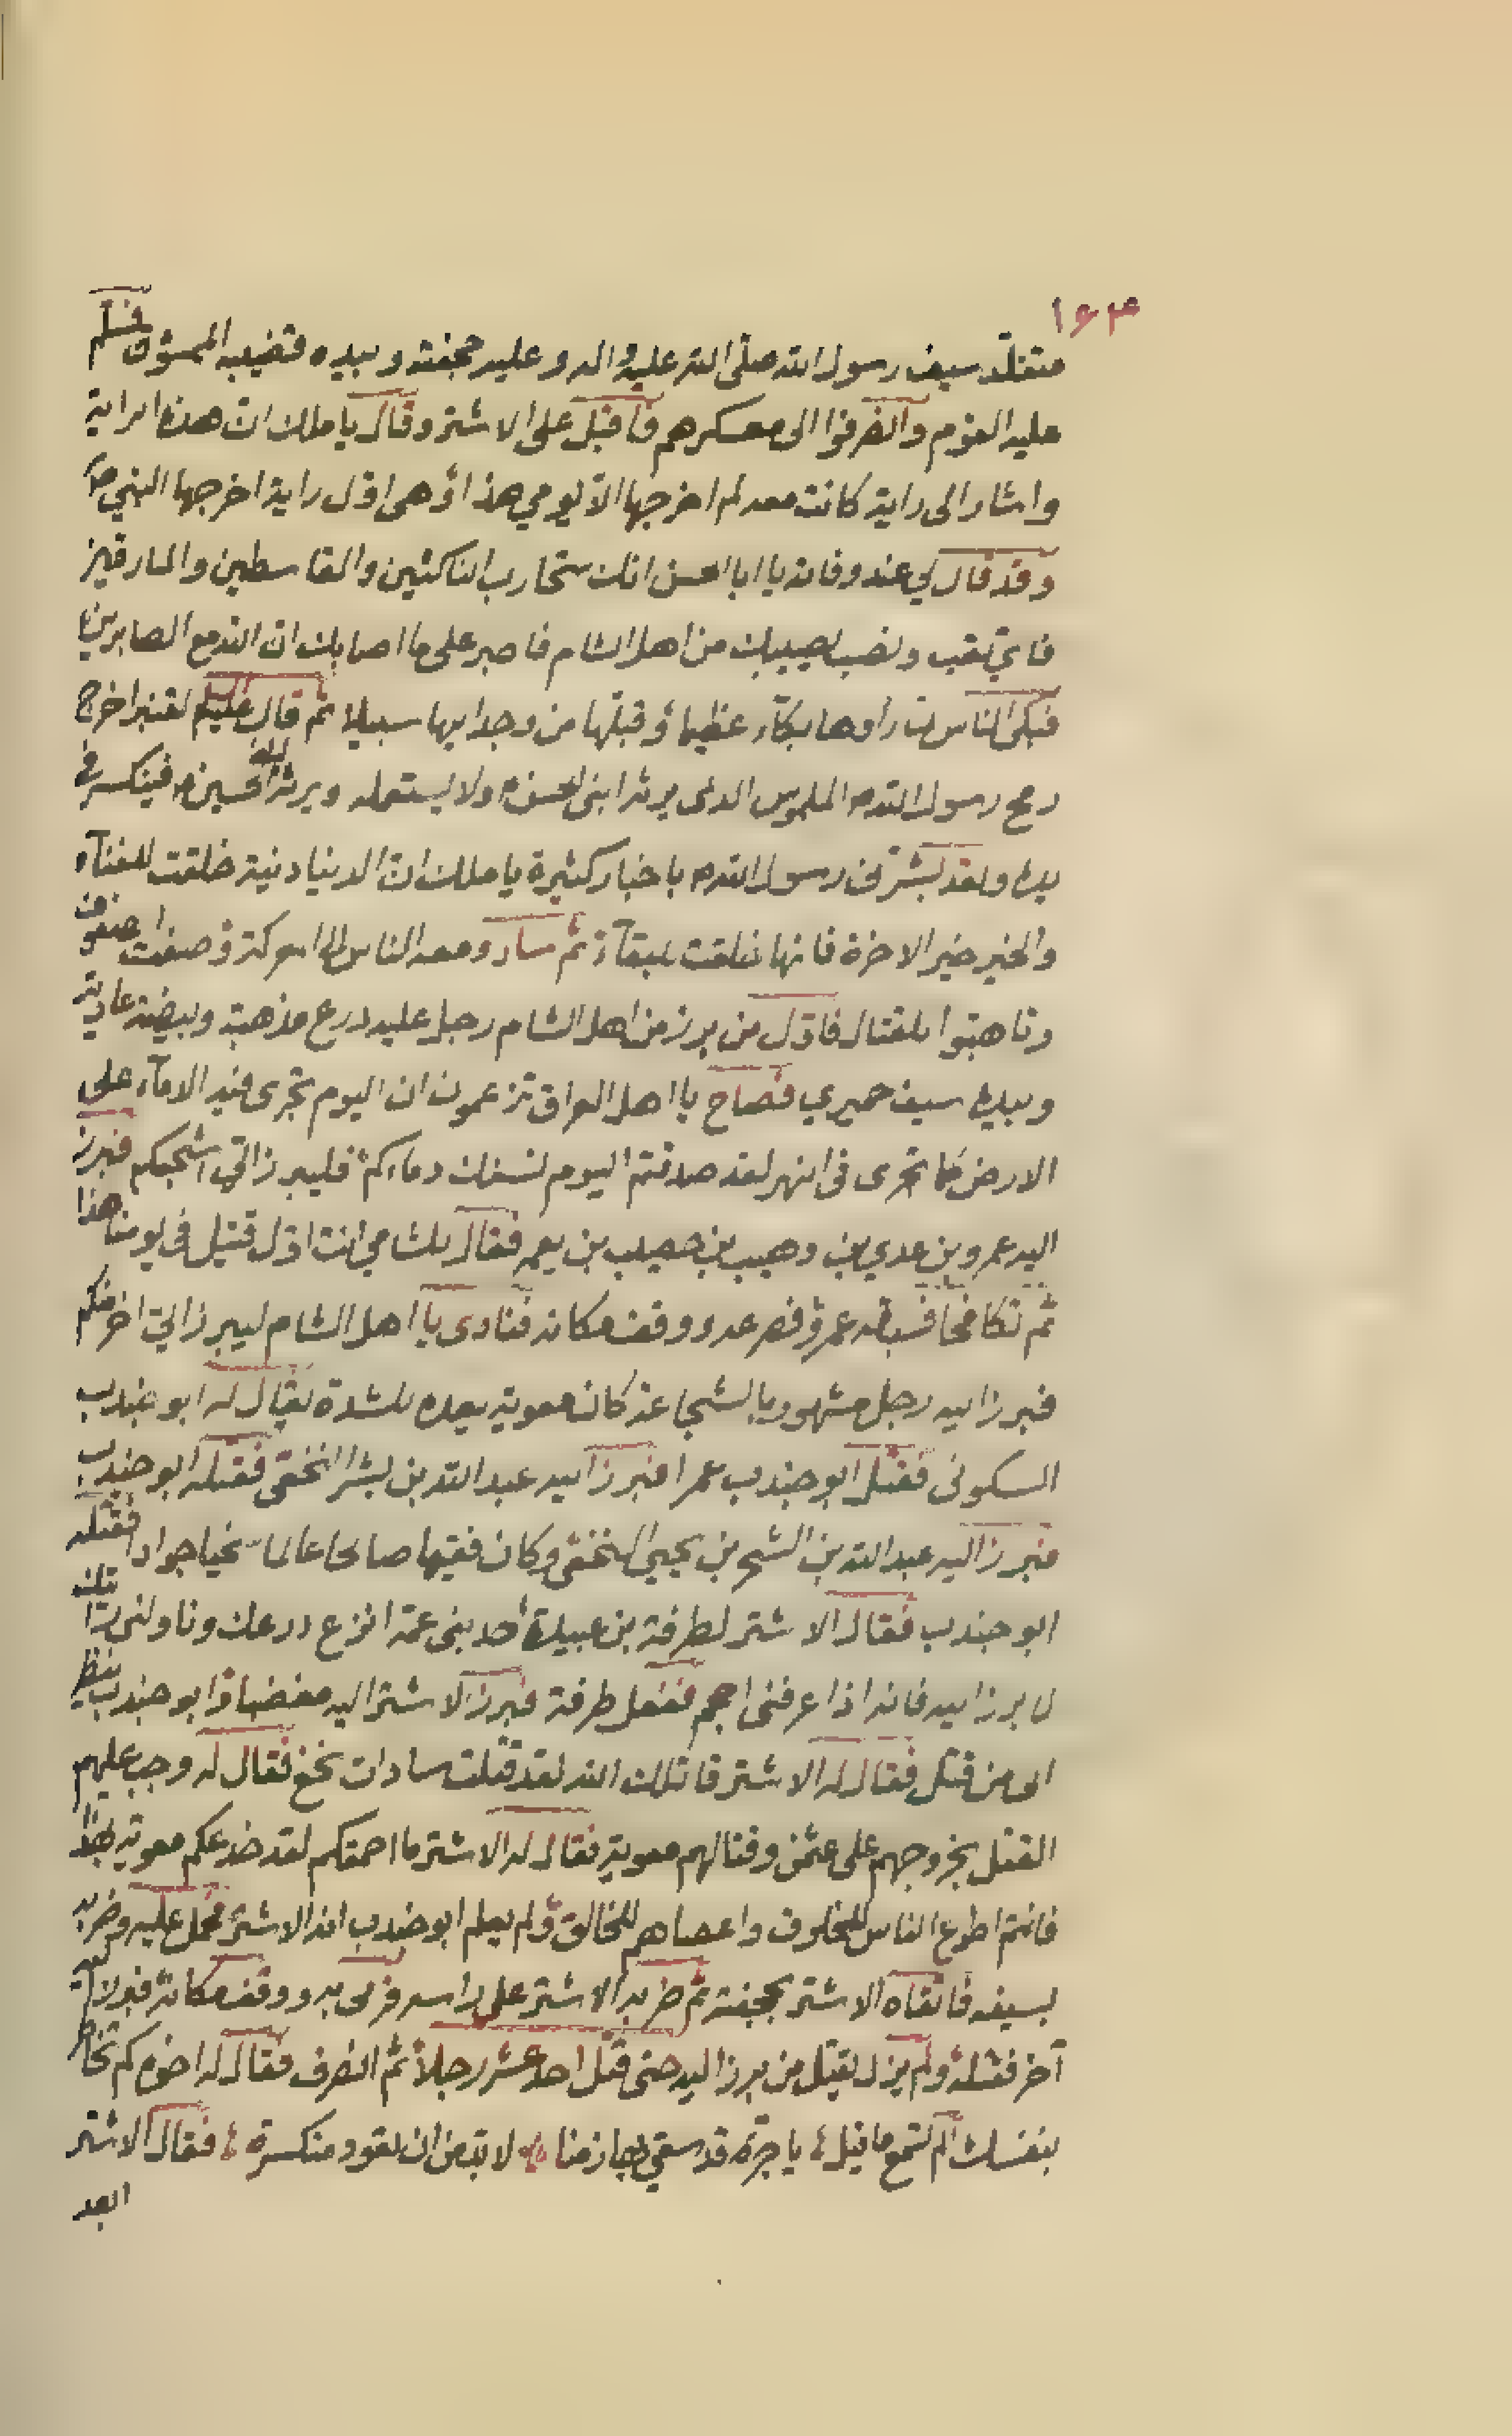 ۱۶۳
متقلّد سيف رسول الله صلّى الله عليه واله وعليه حجفته وبيده قضيبه الممشوق فسلم
عليه القوم وانصرفوا الى معسكرهم فاقبل على الاشتر وقال يا ملك ان هذه الراية
واشار الى راية كانت معه لم اخرجها الّا يومي هذا وهى اوّل راية اخرجها النبي ص
وقد قال لي عند وفاته يا ابا الحسن انك ستحارب الناكثين والقاسطين والمارقين
فاي تعب ونصب يصيبك من اهل الشام فاصبر على ما اصابك ان الله مع الصابرين
فبكى الناس راوها بكآء عظيما وقبلها من وجد اليها سبيلا ثم قال عليه السلم لقنبر اخرج
رمح رسول الله ص الملموس الذى يرثه ابنى الحسن ولا يستعمله ويرثه الحسين فينكسر فى
يده ولقد بشرنى رسول الله ص باخبار كثيرة يا ملك ان الدنيا دنية خلقت للفنآء
والخير خير الاخرة فانها خلقت للبقآء ثم سار ومعه الناس الى المعركة وصفت الصفوف
وتاهبّوا للقتال فاوّل من برز من اهل الشام رجل عليه درع مذهبة وبيضة عادية
وبيده سيف حميري فصاح يا اهل العراق تزعمون ان اليوم تجرى فيه الدمآء على
الارض كما تجرى فى النهر لقد صدقتم اليوم نسفك دمآءكم فليبرز الىّ اشجعكم فبرز
اليه عمرو بن عدي بن وهيب بن خصيب بن يعمر فقال للشامي انت اوّل قتيل فى يومنا هذا
ثم تكافحا فسبقه عمرو فصرعه ووقف مكانه فنادى يا اهل الشام ليبرز الىّ اخر منكم
فبرز اليه رجل مشهور بالشجاعة كان معوية يعده للشدة يقال له ابو جندب
السكونى فقتل ابو جندب عمرا فبرز اليه عبد الله بن بشر النخعى فقتله ابو جندب
فبرز اليه عبد الله بن الشيخ بن يحيى النخعى وكان فقيها صالحا عالما سخيا جوادا فقتله
ابو جندب فقال الاشتر لطرفة بن عبيدة احد بنى عمّه انزع درعك وناولنى رايتك
لابرز اليه فانه اذا عرفنى احجم ففعل طرفة فبرز الاشتر اليه مغضبا وابو جندب ينظر
الى من قتل فقال له الاشتر قاتلك الله لقد قتلت سادات نخع فقال له وجب عليهم
القتل بخروجهم على عثمن وقتالهم معوية فقال له الاشتر ما احمقكم لقد خدعكم معوية بهذا
فانتم اطوع الناس للمخلوق واعصاهم للخالق ولم يعلم ابو جندب انه الاشتر فحمل عليه وضربه
بسيفه فاتقاه الاشتر بحجفته ثم ضربه الاشتر على راسه فرمى به ووقف مكانه فبرز اليه
آخر فقتله ولم يزل يقتل من برز اليه حتى قتل احد عشر رجلا ثم انصرف فقال له اخوه كم تخاطر
بنفسك الم تسمع ما قيل يا جرة قد سقي بها زمنا لا بد من ان تعود منكسرة فقال الاشتر
ابعد